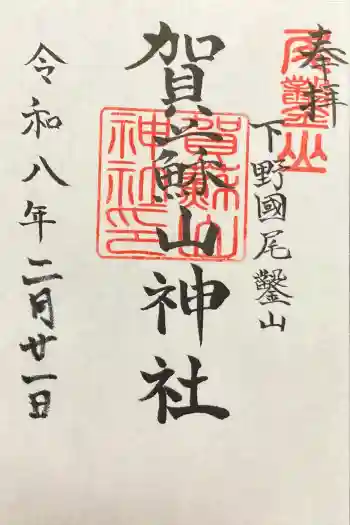 奉拝
尾鑿山
下野國尾鑿山
賀蘇山神社
賀蘇山
神社印
令和八年二月廿一日